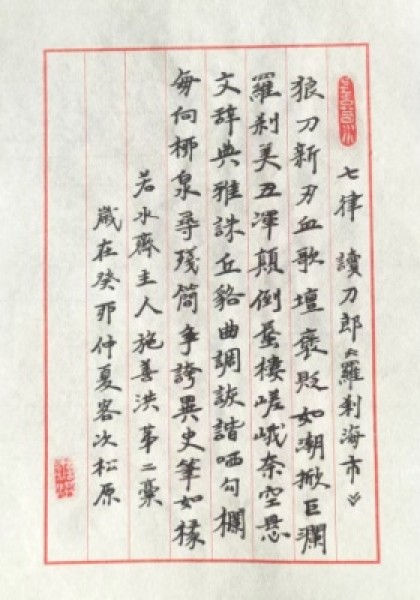 七律 讀刀郎《羅刹海市》
狼刀新刃血歌壇褒毀如潮掀巨瀾
羅刹美丑渾顛倒蜃樓嵯峨奈空懸
文辞典雅誅丘貉曲調詼諧哂勾欄
每向柳泉尋殘簡爭誇異史筆如椽
若水齋主人施善洪第二稾
歲在癸卯仲夏客次松原